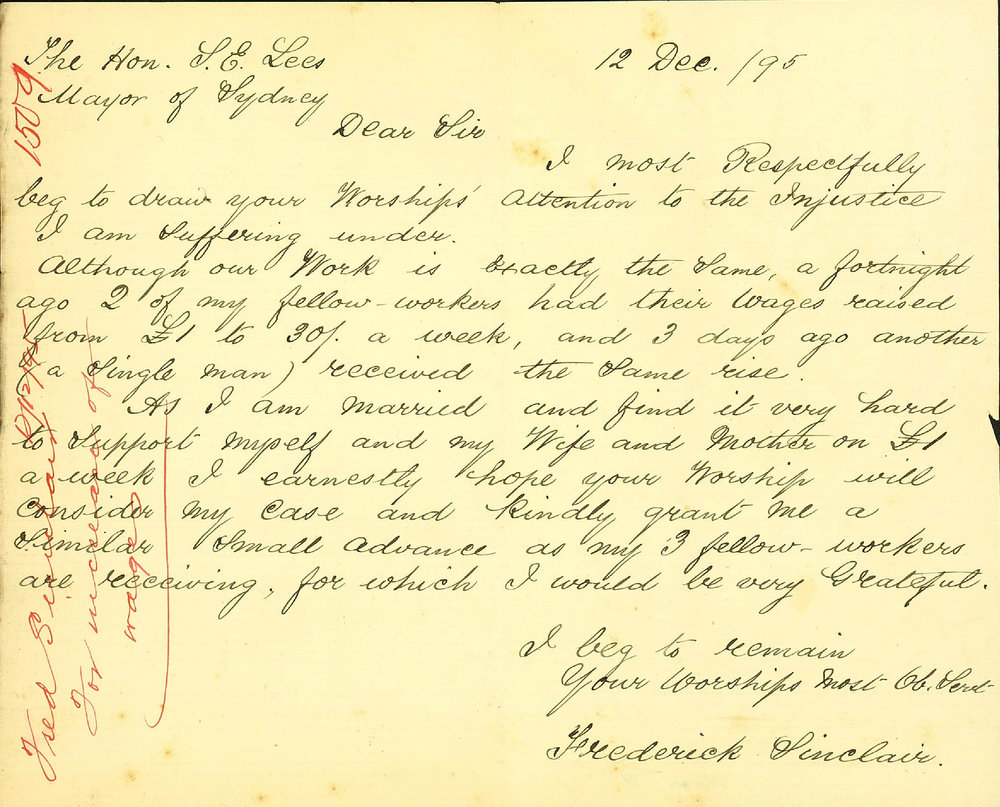 The Hon. S.E. Lees
12 Dec. /95
Mayor of Sydney
Dear Sir
I most Respectfully
beg to draw your Worships' Attention to the Injustice
I am Suffering under.
Although our Work is Exactly the Same, a fortnight
ago 2 of my fellow-workers had their Wages raised
from £1 to 30/. a week, and 3 days ago another
(a Single man) received the Same rise.
As I am Married and find it very hard
to Support Myself and my Wife and Mother on £1
a week I earnestly hope your Worship will
Consider my Case and Kindly grant me a
Similar Small Advance as my 3 fellow-workers
are receiving, for which I would be very Grateful.
I beg to remain
Your Worships Most Ob. Servt
Frederick Sinclair.
1509
Fred Sinclair 12/12/95
For increase of
wages